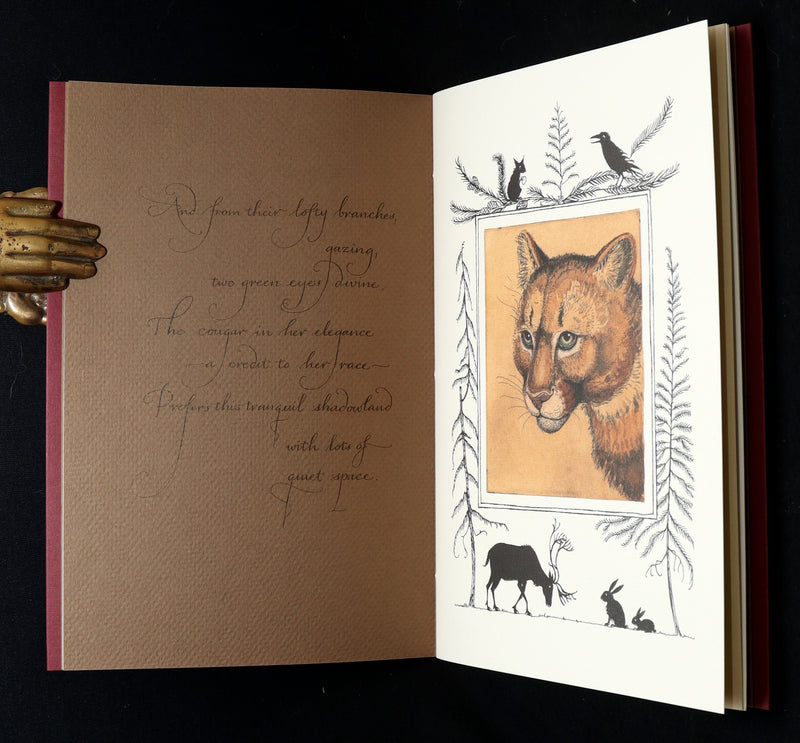 And from their lofty branches,
gazing,
two green eyes divine.
The cougar in her elegance
—a credit to her race—
Prefers this tranquil shadowland
with lots of
quiet space.